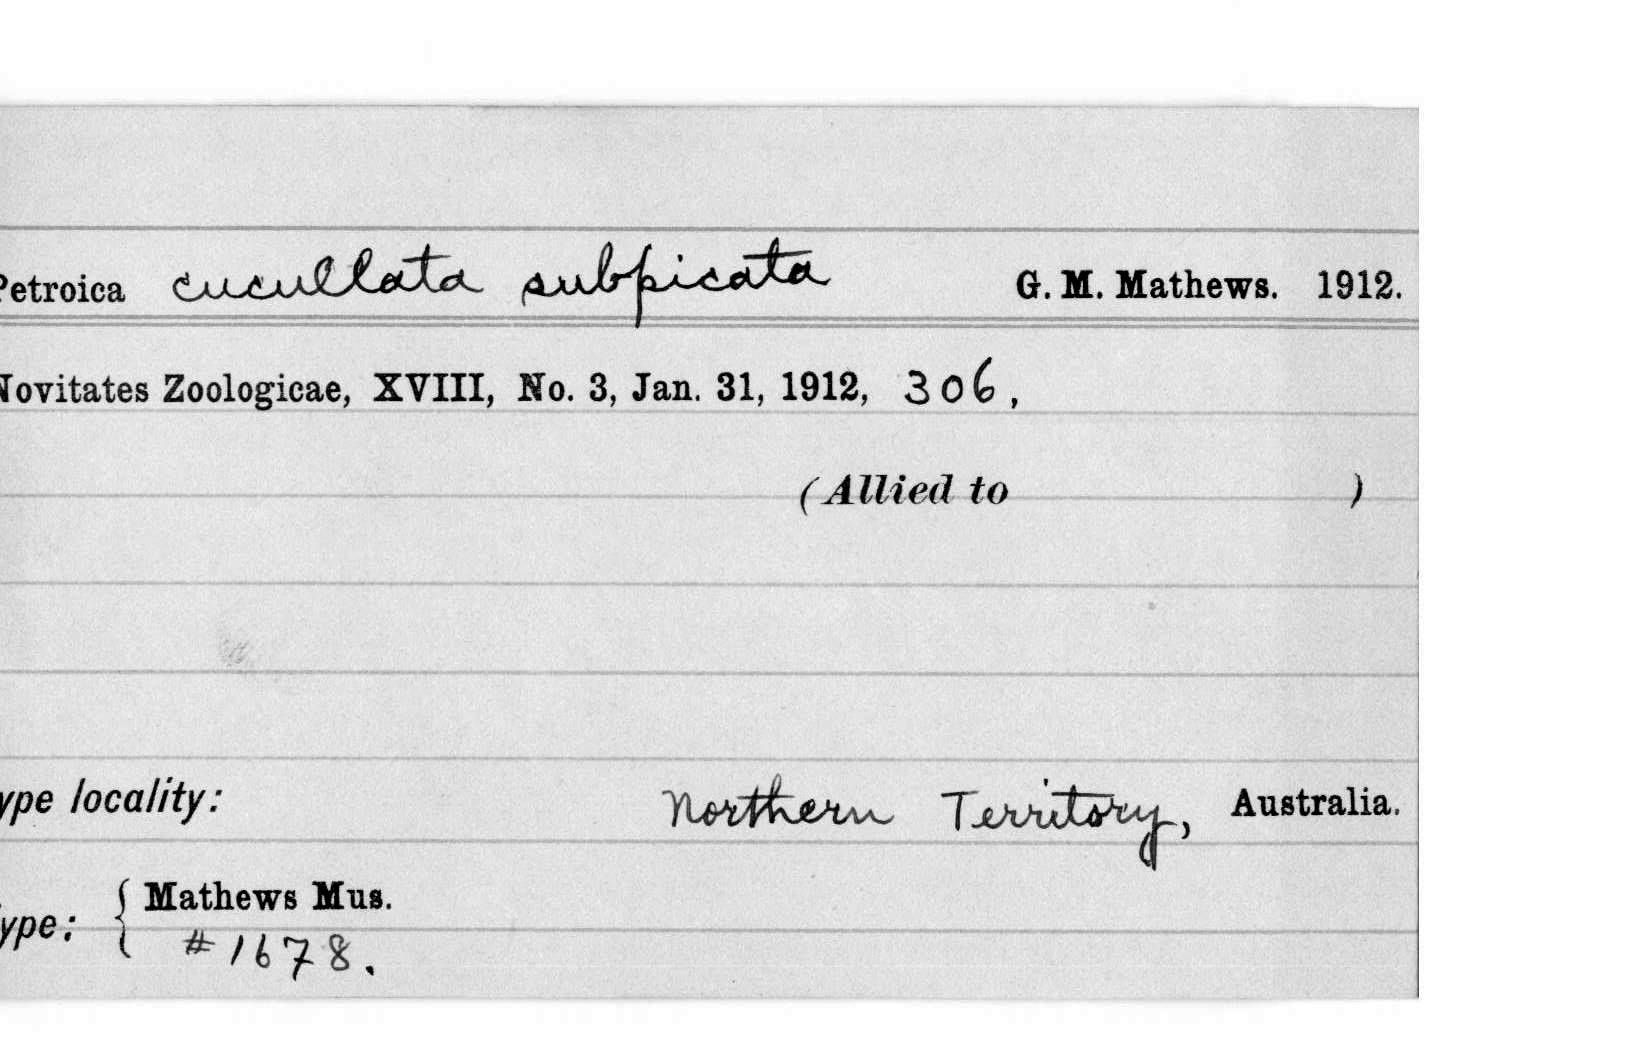 Petroica cucullata subpicata G. M. Mathews. 1912.
Novitates Zoologicae, XVIII, No. 3, Jan. 31, 1912, 306,
(Allied to )
ype locality: Northern Territory, Australia.
Mathews Mus.
ype:
#1678.